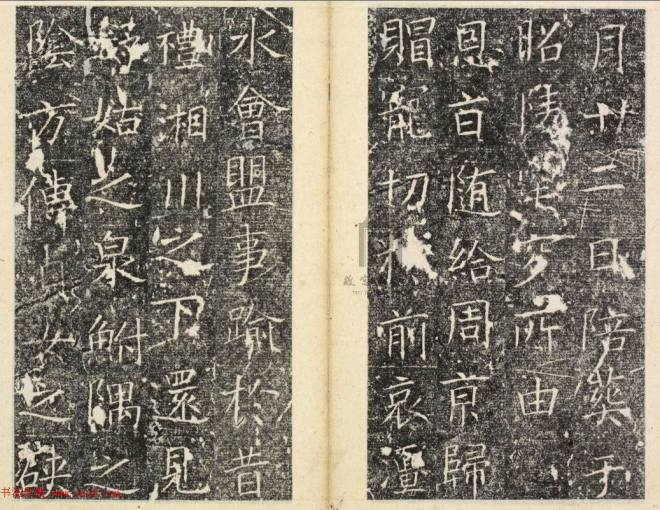 月廿二日陪葬于
昭陵所由
恩旨随给周京歸
賵寵切於前哀
水會盟事踰於昔
禮湘川之下還見
姑之泉鮒隅之
陰方傳女之碑